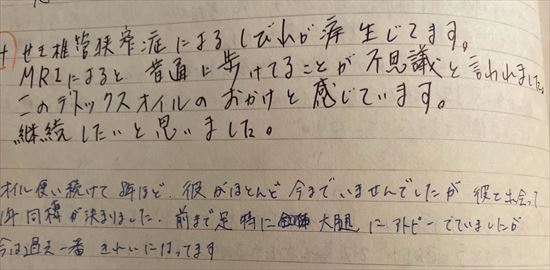 せき椎管狭窄症によるしびれが 生じてます。
MRIによると 普通に歩けてることが不思議と言われました
このデトックスオイルのおかげと感じています。
継続したいと思いました。
オイル使い続けて 年ほど、彼がほとんど今までいませんでしたが 彼と出会って
1年 同棲が決まりました。前まで足 特に 大腿にアトピーでていましたが
今は過去一番 きれいになってます